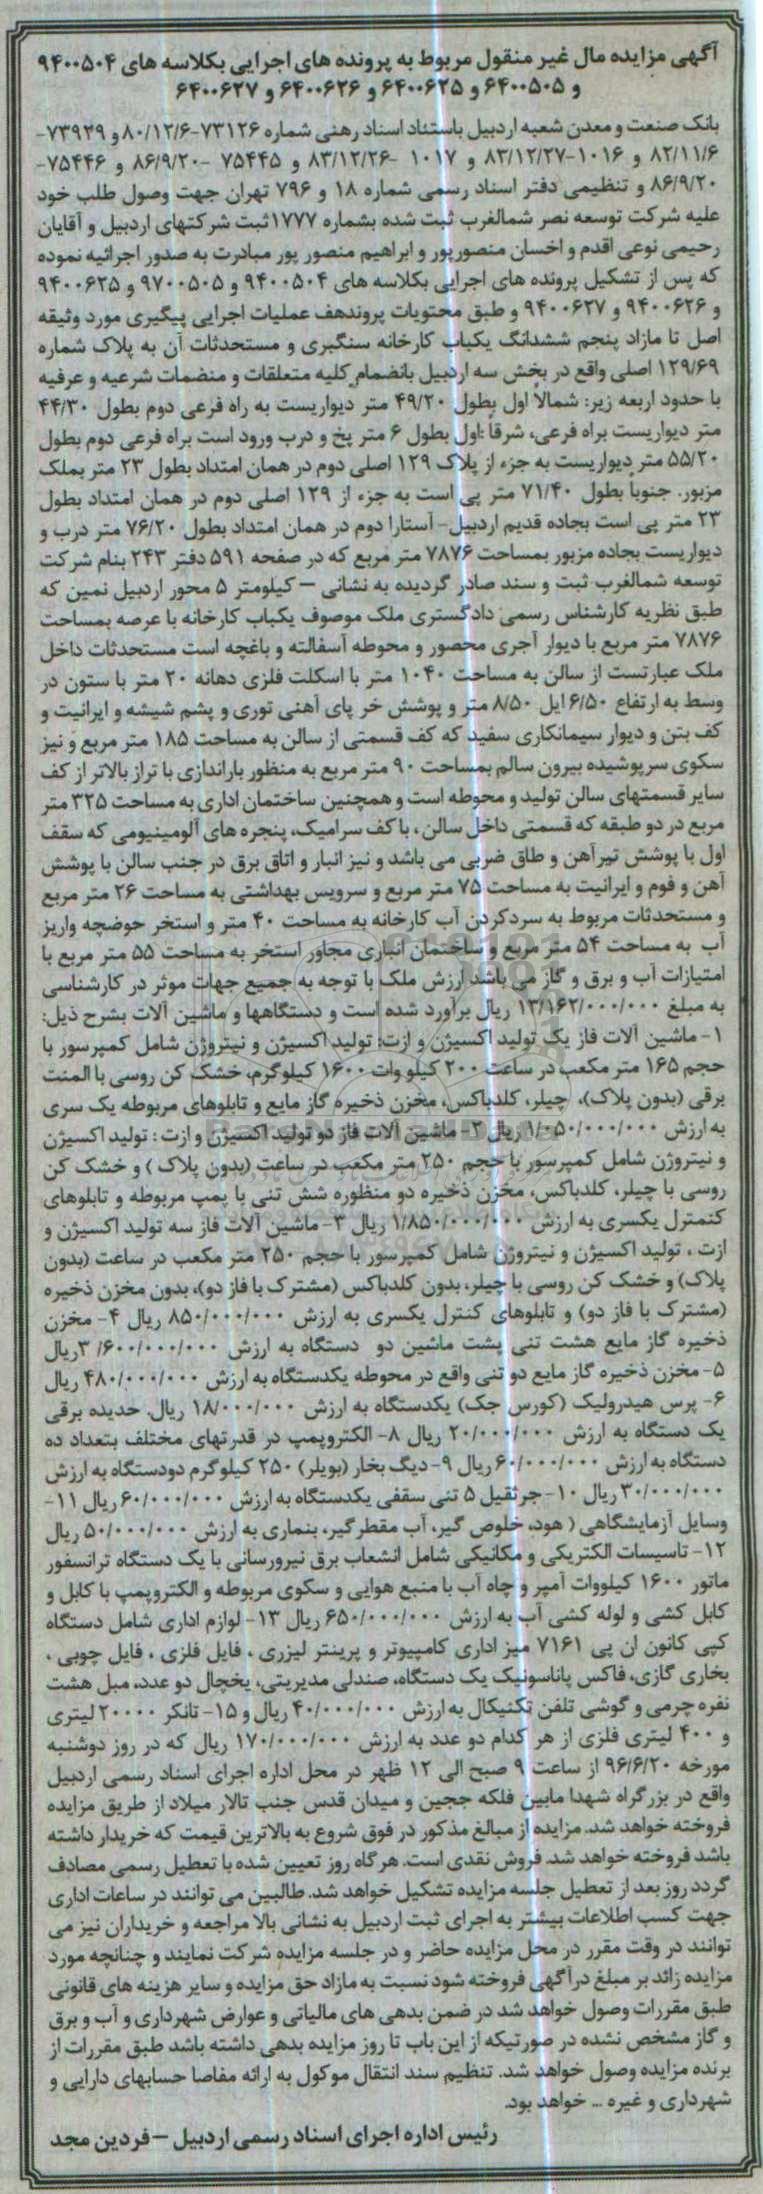 آگهی مزایده مال غیر منقول مربوط به پرونده های اجرایی بکلاسه های ۹۴۰۰۵۰۴
و ۶۴۰۰۵۰۵ و ۶۴۰۰۶۲۵ و ۶۴۰۰۶۲۶ و ۶۴۰۰۶۲۷
بانک صنعت و معدن شعبه اردبیل باستناد اسناد رهنی شماره ۷۳۱۲۶-۸۰/۱۲/۶ و ۷۳۹۲۹-
۸۲/۱۱/۶ و ۱۰۱۶-۸۳/۱۲/۲۷ و ۱۰۱۷ -۸۳/۱۲/۲۶ و ۷۵۴۴۵ -۸۶/۹/۲۰ و ۷۵۴۴۶-
۸۶/۹/۲۰ و تنظیمی دفتر اسناد رسمی شماره ۱۸ و ۷۹۶ تهران جهت وصول طلب خود
علیه شرکت توسعه نصر شمالغرب ثبت شده بشماره ۱۷۷۷ ثبت شرکتهای اردبیل و آقایان
رحیمی نوعی اقدم و احسان منصورپور و ابراهیم منصور پور مبادرت به صدور اجرائیه نموده
که پس از تشکیل پرونده های اجرایی بکلاسه های ۹۴۰۰۵۰۴ و ۹۷۰۰۵۰۵ و ۹۴۰۰۶۲۵
و ۹۴۰۰۶۲۶ و ۹۴۰۰۶۲۷ و طبق محتویات پروندهف عملیات اجرایی پیگیری مورد وثیقه
اصل تا مازاد پنجم ششدانگ یکباب کارخانه سنگبری و مستحدثات آن به پلاک شماره
۱۲۹/۶۹ اصلی واقع در بخش سه اردبیل بانضمام کلیه متعلقات و منضمات شرعیه و عرفیه
با حدود اربعه زیر: شمالاً اول بطول ۴۹/۲۰ متر دیواریست به راه فرعی دوم بطول ۴۴/۳۰
متر دیواریست براه فرعی، شرقاً :اول بطول ۶ متر پخ و درب ورود است براه فرعی دوم بطول
۵۵/۲۰ متر دیواریست به جزء از پلاک ۱۲۹ اصلی دوم در همان امتداد بطول ۲۳ متر بملک
مزبور. جنوباً بطول ۷۱/۴۰ متر پی است به جزء از ۱۲۹ اصلی دوم در همان امتداد بطول
۲۳ متر پی است بجاده قدیم اردبیل- آستارا دوم در همان امتداد بطول ۷۶/۲۰ متر درب و
دیواریست بجاده مزبور بمساحت ۷۸۷۶ متر مربع که در صفحه ۵۹۱ دفتر ۲۴۳ بنام شرکت
توسعه شمالغرب ثبت و سند صادر گردیده به نشانی – کیلومتر ۵ محور اردبیل نمین که
طبق نظریه کارشناس رسمی دادگستری ملک موصوف یکباب کارخانه با عرصه بمساحت
۷۸۷۶ متر مربع با دیوار آجری محصور و محوطه آسفالته و باغچه است مستحدثات داخل
ملک عبارتست از سالن به مساحت ۱۰۴۰ متر با اسکلت فلزی دهانه ۲۰ متر با ستون در
وسط به ارتفاع ۶/۵۰ ایل ۸/۵۰ متر و پوشش خر پای آهنی توری و پشم شیشه و ایرانیت و
کف بتن و دیوار سیمانکاری سفید که کف قسمتی از سالن به مساحت ۱۸۵ متر مربع و نیز
سکوی سرپوشیده بیرون سالم بمساحت ۹۰ متر مربع به منظور باراندازی با تراز بالاتر از کف
سایر قسمتهای سالن تولید و محوطه است و همچنین ساختمان اداری به مساحت ۳۲۵ متر
مربع در دو طبقه که قسمتی داخل سالن، با کف سرامیک، پنجره های آلومینیومی که سقف
اول با پوشش تیرآهن و طاق ضربی می باشد و نیز انبار و اتاق برق در جنب سالن با پوشش
آهن و فوم و ایرانیت به مساحت ۷۵ متر مربع و سرویس بهداشتی به مساحت ۲۶ متر مربع
و مستحدثات مربوط به سردکردن آب کارخانه به مساحت ۴۰ متر و استخر حوضچه واریز
آب به مساحت ۵۴ متر مربع و ساختمان انباری مجاور استخر به مساحت ۵۵ متر مربع با
امتیازات آب و برق و گاز می باشد ارزش ملک با توجه به جمیع جهات موثر در کارشناسی
به مبلغ ۱۳/۱۶۲/۰۰۰/۰۰۰ ریال برآورد شده است و دستگاهها و ماشین آلات بشرح ذیل:
۱- ماشین آلات فاز یک تولید اکسیژن و ازت: تولید اکسیژن و نیتروژن شامل کمپرسور با
حجم ۱۶۵ متر مکعب در ساعت ۲۰۰ کیلو وات ۱۶۰۰ کیلوگرم، خشک کن روسی با المنت
برقی (بدون پلاک)، چیلر، کلدباکس، مخزن ذخیره گاز مایع و تابلوهای مربوطه یک سری
به ارزش ۱/۰۵۰/۰۰۰/۰۰۰ ریال ۲- ماشین آلات فاز دو تولید اکسیژن و ازت : تولید اکسیژن
و نیتروژن شامل کمپرسور با حجم ۲۵۰ متر مکعب در ساعت (بدون پلاک ) و خشک کن
روسی با چیلر، کلدباکس، مخزن ذخیره دو منظوره شش تنی با پمپ مربوطه و تابلوهای
کنمترل یکسری به ارزش ۱/۸۵۰/۰۰۰/۰۰۰ ریال ۳- ماشین آلات فاز سه تولید اکسیژن و
ازت ، تولید اکسیژن و نیتروژن شامل کمپرسور با حجم ۲۵۰ متر مکعب در ساعت (بدون
پلاک) و خشک کن روسی با چیلر، بدون کلدباکس (مشترک با فاز دو)، بدون مخزن ذخیره
(مشترک با فاز دو) و تابلوهای کنترل یکسری به ارزش ۸۵۰/۰۰۰/۰۰۰ ریال ۴- مخزن
ذخیره گاز مایع هشت تنی پشت ماشین دو دستگاه به ارزش ۳/۶۰۰/۰۰۰/۰۰۰ ریال
۵- مخزن ذخیره گاز مایع دو تنی واقع در محوطه یکدستگاه به ارزش ۴۸۰/۰۰۰/۰۰۰ ریال
۶- پرس هیدرولیک (کورس جک) یکدستگاه به ارزش ۱۸/۰۰۰/۰۰۰ ریال. حدیده برقی
یک دستگاه به ارزش ۲۰/۰۰۰/۰۰۰ ریال ۸- الکتروپمپ در قدرتهای مختلف بتعداد ده
دستگاه به ارزش ۶۰/۰۰۰/۰۰۰ ریال ۹- دیگ بخار (بویلر) ۲۵۰ کیلوگرم دودستگاه به ارزش
۳۰/۰۰۰/۰۰۰ ریال ۱۰- جرثقیل ۵ تنی سقفی یکدستگاه به ارزش ۶۰/۰۰۰/۰۰۰ ریال ۱۱-
وسایل آزمایشگاهی ( هود، خلوص گیر، آب مقطرگیر، بنماری به ارزش ۵۰/۰۰۰/۰۰۰ ریال
۱۲- تاسیسات الکتریکی و مکانیکی شامل انشعاب برق نیرورسانی با یک دستگاه ترانسفور
ماتور ۱۶۰۰ کیلووات آمپر و چاه آب با منبع هوایی و سکوی مربوطه و الکتروپمپ با کابل و
کابل کشی و لوله کشی آب به ارزش ۶۵۰/۰۰۰/۰۰۰ ریال ۱۳- لوازم اداری شامل دستگاه
کپی کانون ان پی ۷۱۶۱ میز اداری کامپیوتر و پرینتر لیزری ، فایل فلزی ، فایل چوبی ،
بخاری گازی، فاکس پاناسونیک یک دستگاه، صندلی مدیریتی، یخچال دو عدد، مبل هشت
نفره چرمی و گوشی تلفن تکنیکال به ارزش ۴۰/۰۰۰/۰۰۰ ریال و ۱۵- تانکر ۲۰۰۰۰ لیتری
و ۴۰۰ لیتری فلزی از هر کدام دو عدد به ارزش ۱۷۰/۰۰۰/۰۰۰ ریال که در روز دوشنبه
مورخه ۹۶/۶/۲۰ از ساعت ۹ صبح الی ۱۲ ظهر در محل اداره اجرای اسناد رسمی اردبیل
واقع در بزرگراه شهدا مابین فلکه ججین و میدان قدس جنب تالار میلاد از طریق مزایده
فروخته خواهد شد. مزایده از مبالغ مذکور در فوق شروع به بالاترین قیمت که خریدار داشته
باشد فروخته خواهد شد. فروش نقدی است. هر گاه روز تعیین شده با تعطیل رسمی مصادف
گردد روز بعد از تعطیل جلسه مزایده تشکیل خواهد شد. طالبین می توانند در ساعات اداری
جهت کسب اطلاعات بیشتر به اجرای ثبت اردبیل به نشانی بالا مراجعه و خریداران نیز می
توانند در وقت مقرر در محل مزایده حاضر و در جلسه مزایده شرکت نمایند و چنانچه مورد
مزایده زائد بر مبلغ درآگهی فروخته شود نسبت به مازاد حق مزایده و سایر هزینه های قانونی
طبق مقررات وصول خواهد شد در ضمن بدهی های مالیاتی و عوارض شهرداری و آب و برق
و گاز مشخص نشده در صورتیکه از این باب تا روز مزایده بدهی داشته باشد طبق مقررات از
برنده مزایده وصول خواهد شد. تنظیم سند انتقال موکول به ارائه مفاصا حسابهای دارایی و
شهرداری و غیره ... خواهد بود.
رئیس اداره اجرای اسناد رسمی اردبیل –فردین مجد